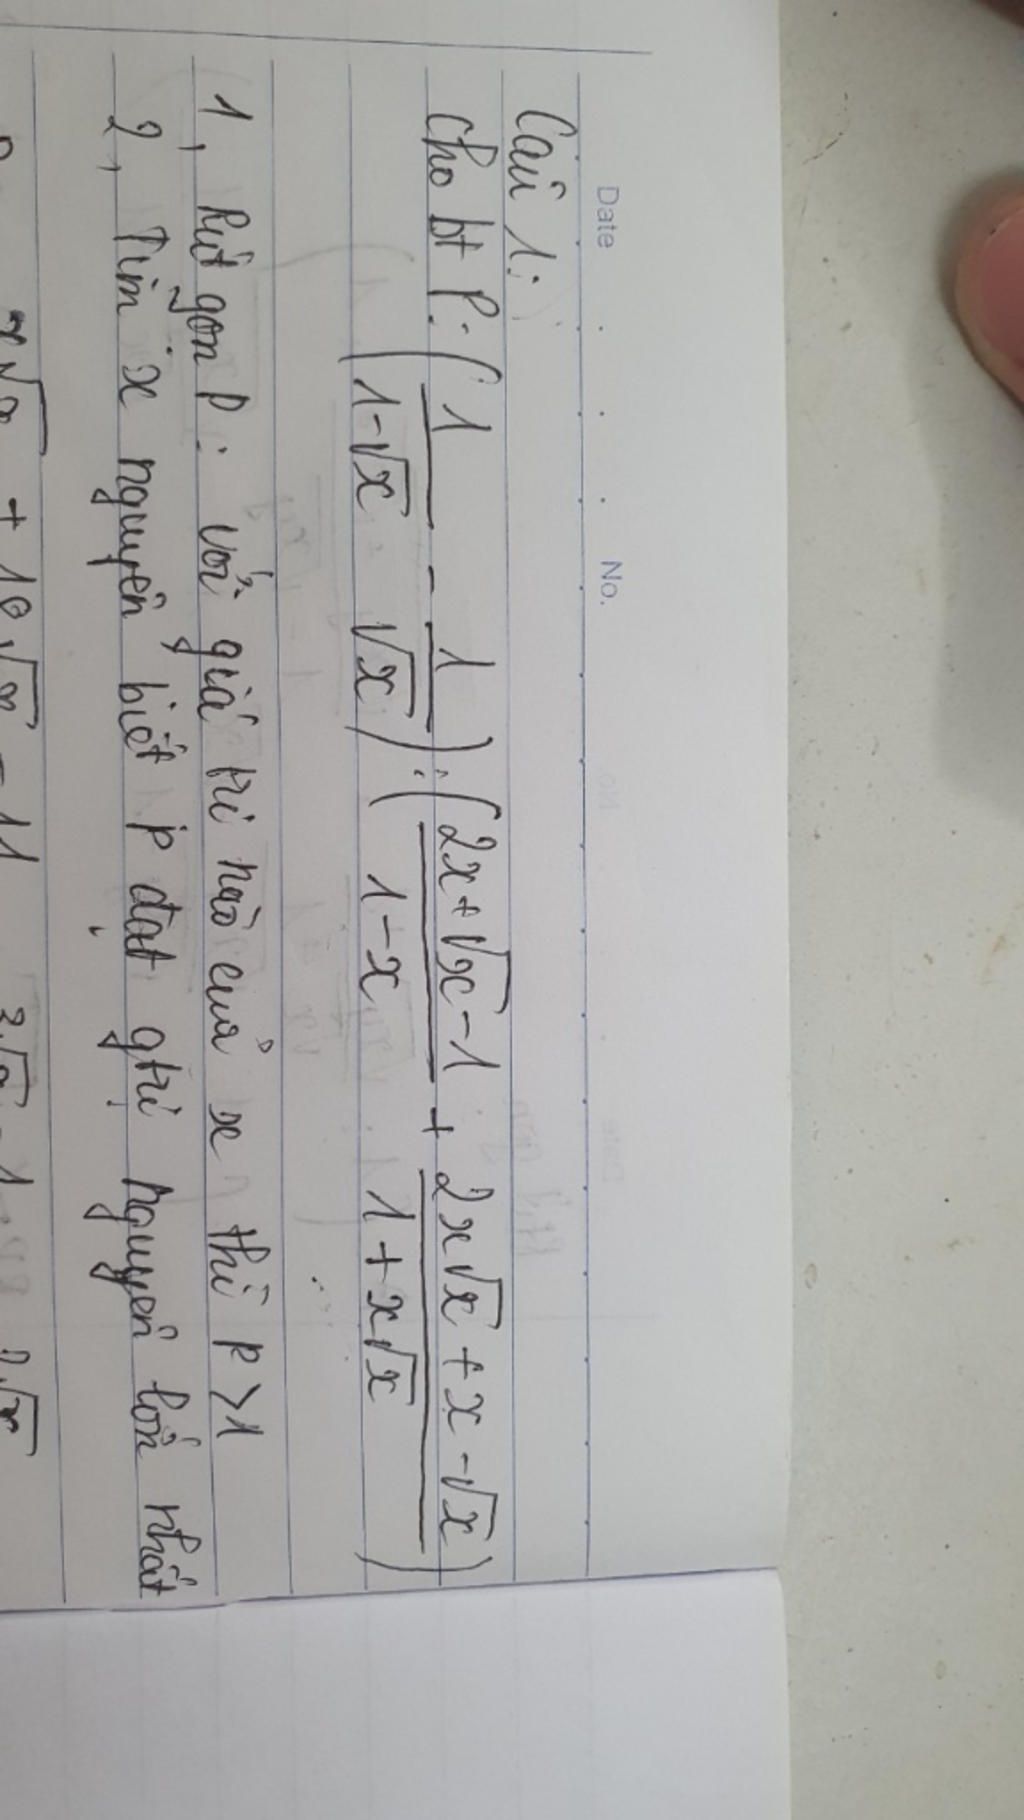 Date No.
Câu 1:
Cho bt P: (1/(1-√x) - 1/√x) : ((2x+√x-1)/(1-x) + (2x√x+x-√x)/(1+x√x))
1, Rút gọn P: với giá trị nào của x thì P>1
2, Tìm x nguyên biết P đạt gtrị nguyên lớn nhất
x√x + 10√x - 11